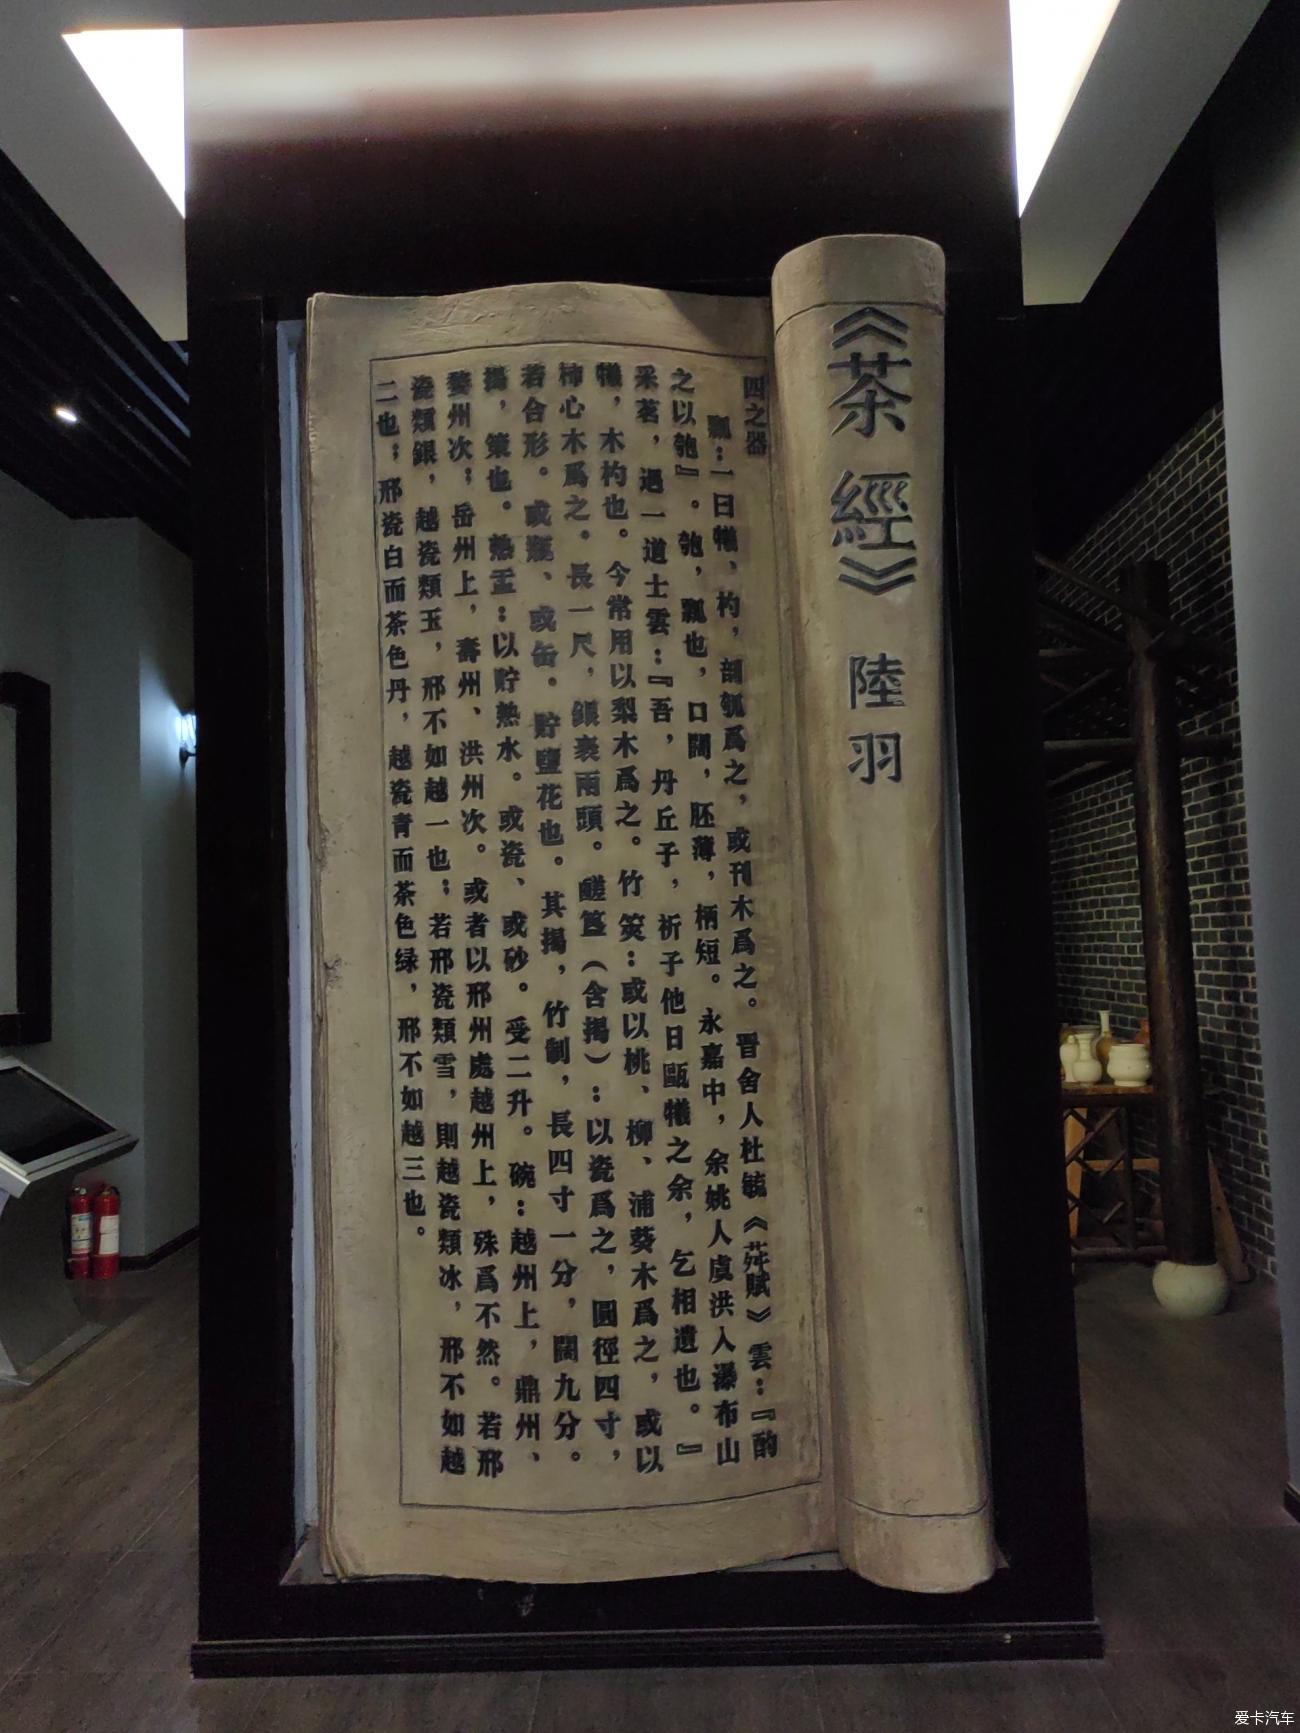 《茶經》 陸羽
四之器
瓢：一曰犧、杓，剖瓠爲之，或刊木爲之。晉舍人杜毓《荈賦》雲：『酌
之以匏』。匏，瓢也，口闊，胚薄，柄短。永嘉中，余姚人虞洪入瀑布山
采茗，遇一道士雲：『吾，丹丘子，祈子他日甌犧之余，乞相遺也。』
犧，木杓也。今常用以梨木爲之。竹筴：或以桃、柳、浦葵木爲之，或以
柿心木爲之。長一尺，銀裹兩頭。鹺簋（含揭）：以瓷爲之，圓徑四寸，
若合形。或瓶、或缶。貯鹽花也。其揭，竹制，長四寸一分，闊九分。
揭，策也。熱盂：以貯熱水。或瓷、或砂。受二升。碗：越州上，鼎州、
婺州次；岳州上，壽州、洪州次。或者以邢州處越州上，殊爲不然。若邢
瓷類銀，越瓷類玉，邢不如越一也；若邢瓷類雪，則越瓷類冰，邢不如越
二也；邢瓷白而茶色丹，越瓷青而茶色绿，邢不如越三也。
爱卡汽车